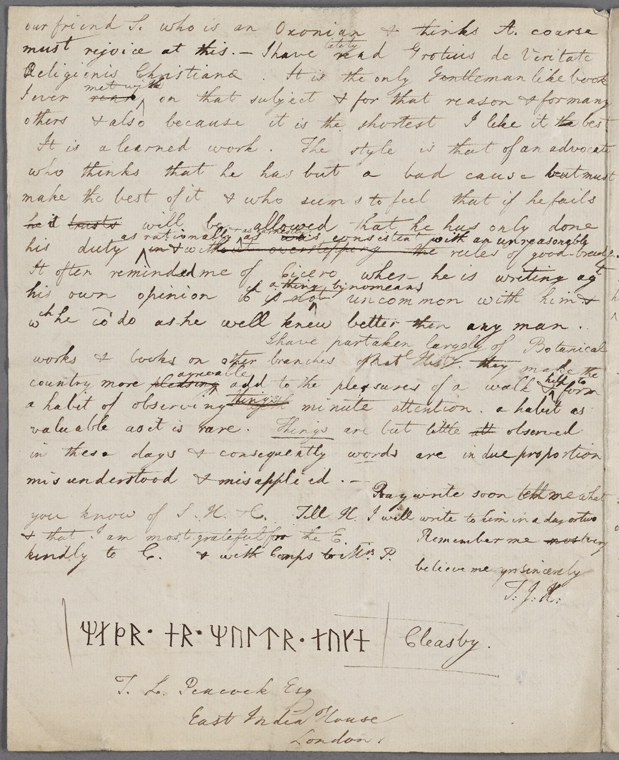 our friend S. who is an Oxonian & thinks A. coarse
must rejoice at this. — I have lately read Grotius de Veritate
Religionis Christianæ. It is the only Gentleman like book
I ever met with on that subject & for that reason & for many
others & also because it is the shortest I like it the best
It is a learned work. The style is that of an advocate
who thinks that he has but a bad cause but must
make the best of it & who seems to feel that if he fails
he is will be allowed that he has only done
his duty as rationally as was consistent with an unreasonable
in & without overstepping the rules of good breeding.
It often reminded me of Cicero when he is writing agt
his own opinion a thing by no means uncommon with him &
wch he cd do as he well knew better than any man.
I have partaken largely of Botanical
works & books on other branches of Natl Histy. they make the
country more pleasing agreeable add to the pleasures of a walk & help to form
a habit of observing things minute attention. a habit as
valuable as it is rare. Things are but little observed
in these days & consequently words are in due proportion
misunderstood & misapplied. —
Pray write soon tell me what
you know of S. H. & C. Tell H. I will write to him in a day or two
& that I am most grateful for the E. Remember me most very
kindly to C. & with Comps to Mrs. P.
believe me yrs sincerely
T. J. H.
ᛘᛆᚦᚱ · ᚽᚱ · ᛘᚢᛚᛏᚱ · ᛆᚢᚴᚽ Cleasby.
T. L. Peacock Esq
East India House
London.